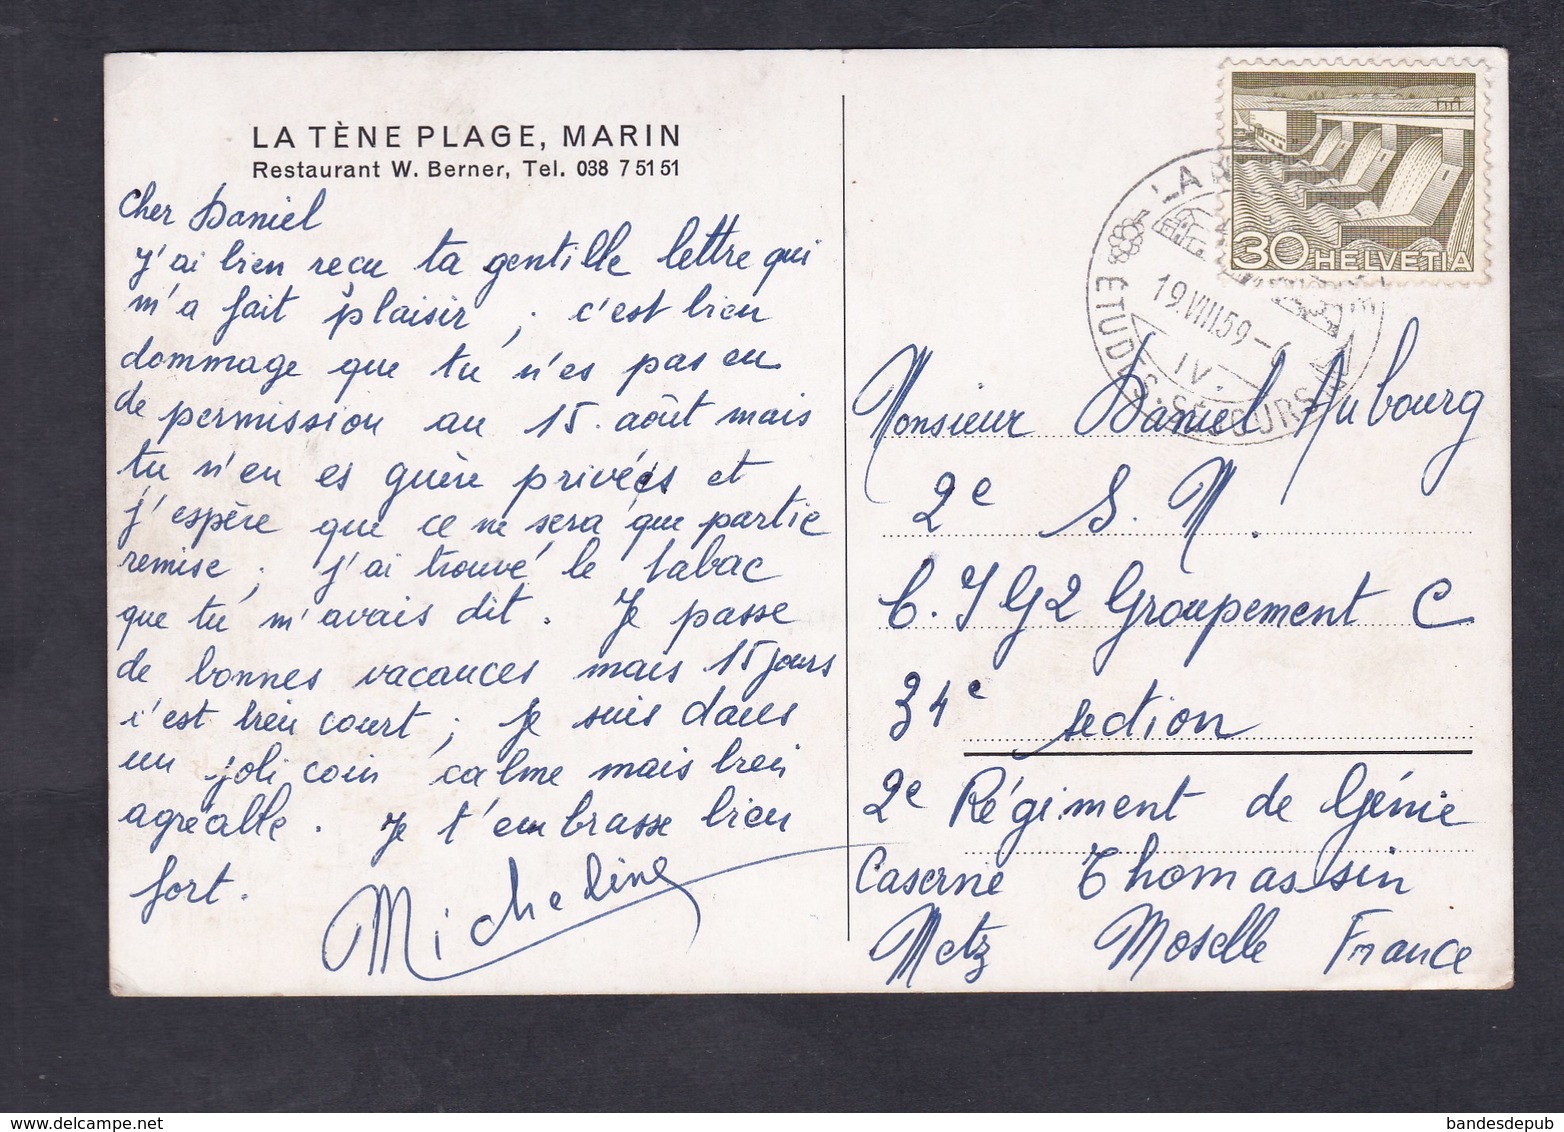 LA TÈNE PLAGE, MARIN
Restaurant W. Berner, Tel. 038 7 51 51
Cher Daniel
J'ai bien reçu ta gentille lettre qui
m'a fait plaisir ; c'est bien
dommage que tu n'es pas eu
de permission au 15. août mais
tu n'en es guère privés et
j'espère que ce ne sera que partie
remise ; j'ai trouvé le tabac
que tu m'avais dit. Je passe
de bonnes vacances mais 15 jours
c'est bien court ; je suis dans
un joli coin calme mais bien
agréable. Je t'embrasse bien
fort.
Micheline
30 HELVETIA
LA
19.VIII.59-
IV.
ÉTUDES. SÉJOURS
Monsieur Daniel Aubourg
2e S. M.
C. I G2 Groupement C
34e section
2e Régiment de Génie
Caserne Thomassin
Metz Moselle France
bandesdepub